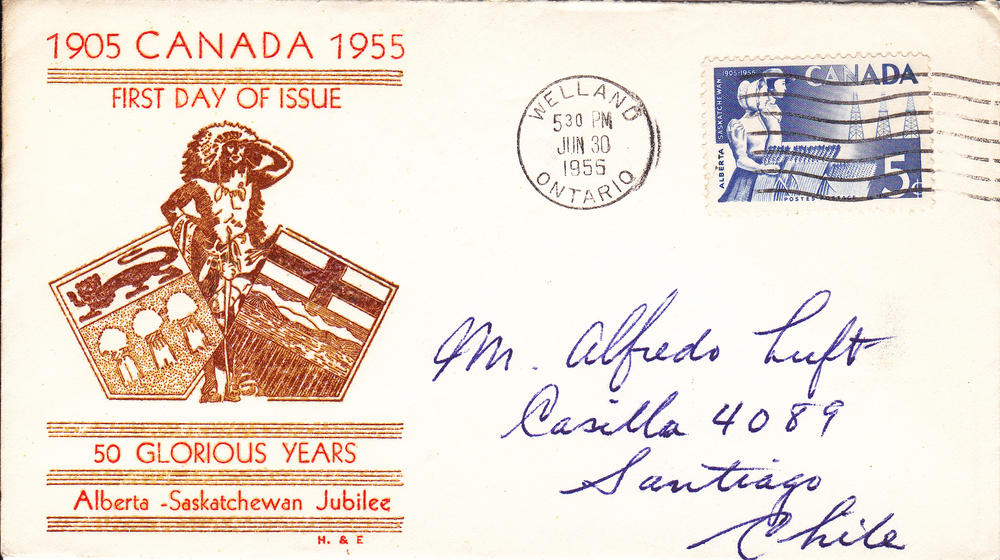 1905 CANADA 1955
FIRST DAY OF ISSUE
50 GLORIOUS YEARS
Alberta - Saskatchewan Jubilee
H. & E
WELLAND
5 30 PM
JUN 30
1955
ONTARIO
1905-1955
CANADA
ALBERTA SASKATCHEWAN
5¢
POSTES POSTAGE
Mr. Alfredo Luft
Casilla 4089
Santiago
Chile